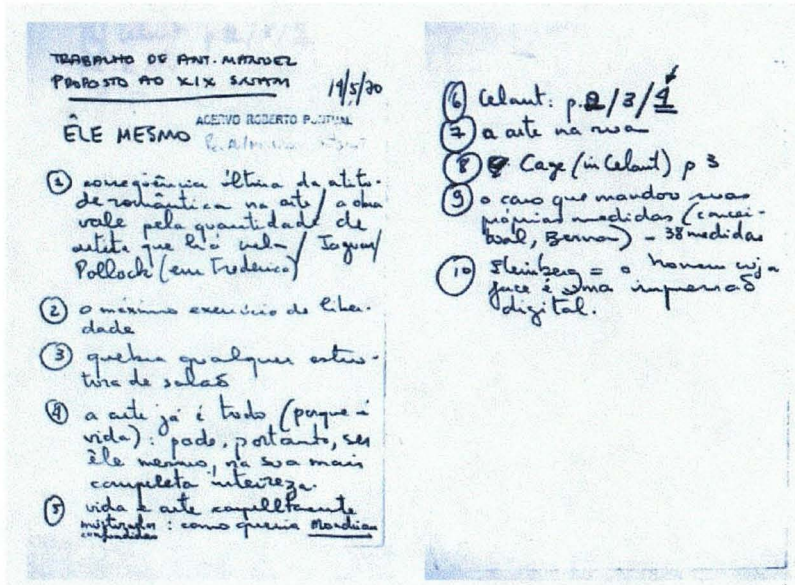 TRABALHO DE ANT. MANUEL
PROPOSTO AO XIX SNAM
19/5/70
ACERVO ROBERTO PONTUAL
ÊLE MESMO
① conseqüência última da atitu-
de romântica na arte / a obra
vale pela quantidade de
artista que há nela / Jaguar /
Pollock (em Frederico)
② o máximo exercício de liber-
dade
③ quebra qualquer estru-
tura de salão
④ a arte já é tudo (porque é
vida): pode, portanto, ser
êle mesmo, na sua mais
completa inteireza.
⑤ vida e arte completamente
misturadas confundidas : como queria Mondrian
⑥ Celant: p. 2/3/4
⑦ a arte na rua
⑧ Cage (in Celant) p 3
⑨ o caso que mandou suas
próprias medidas (concei-
tual, Bernar) – 38 medidas
⑩ Steinberg = o homem cuja
face é uma impressão
digital.